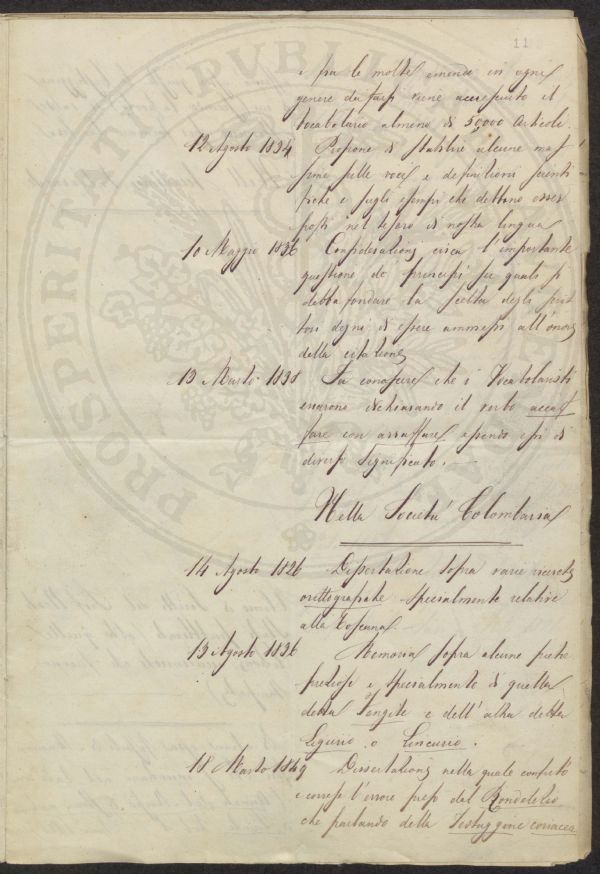 11
e fra le molte emende in ogni
genere da farsi viene accresciuto il
Vocabolario almeno di 50,000 Articoli.
12 Agosto 1834 Propone di stabilire alcune mas
sime sulle voci e definizioni scienti
fiche e sugli esempi che debbano esser
posti nel tesoro di nostra lingua
10 Maggio 1836 Considerazioni circa l'importante
questione de' principj su quali si
debba fondare la scelta degli scrit
tori degni di essere ammessi all'onore
della citazione
13 Marzo 1838 Fa conoscere che i Vocabolaristi
errarono dichiarando il verbo accaf
fare con arraffare essendo essi di
diverso significato.
Nella Società Colombaria
14 Agosto 1826 Dissertazione sopra varie ricerche
orittografiche specialmente relative
alla Toscana.
13 Agosto 1836 Memoria sopra alcune pietre
preziose e specialmente di quella
detta Fengite e dell'altra detta
Ligurio o Lincurio.
18 Marzo 1849 Dissertazione nella quale confutò
e corresse l'errore preso dal Rondelezio
che parlando della Testuggine coriacea
PROSPERITATI PVBLICAE